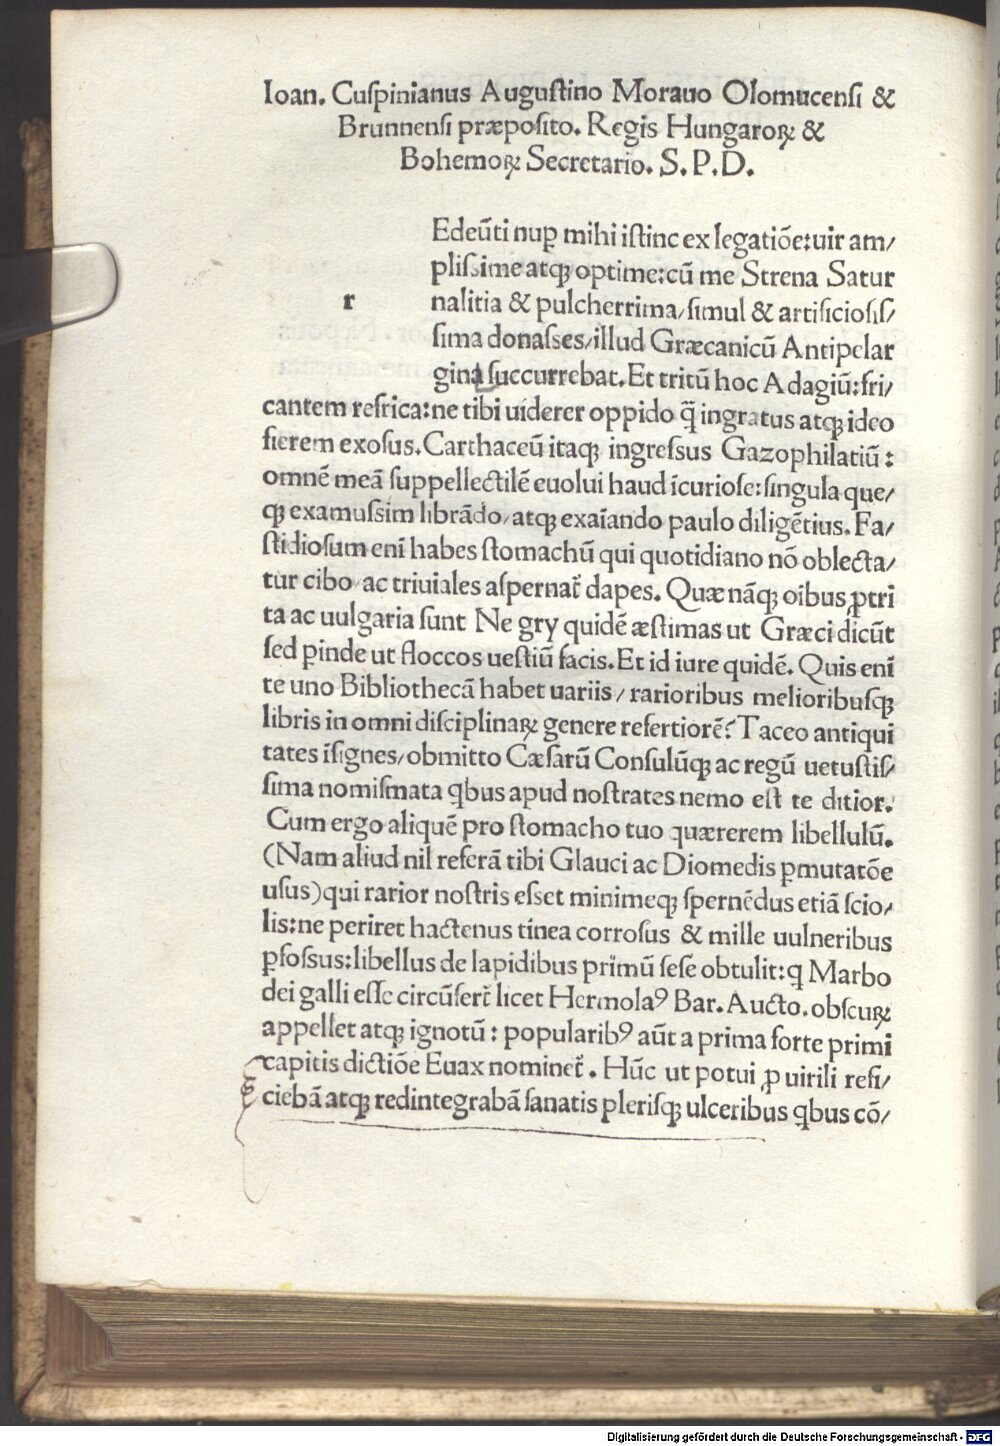 Ioan. Cuſpinianus Auguſtino Morauo Olomucenſi &
Brunnenſi præpoſito. Regis Hungaroꝝ &
Bohemoꝝ Secretario. S. P. D.
Edeũti nuꝑ mihi iſtinc ex legatiõe:uir am/
pliſſime atqꝫ optime:cũ me Strena Satur
r
nalitia & pulcherrima/ſimul & artificioſiſ/
ſima donaſſes/illud Græcanicũ Antipelar
gina ſuccurrebat. Et tritũ hoc Adagiũ:fri/
cantem refrica:ne tibi uiderer oppido q̃ ingratus atqꝫ ideo
fierem exoſus. Carthaceũ itaqꝫ ingreſſus Gazophilatiũ:
omnẽ meã ſuppellectilẽ euolui haud ĩcurioſe:ſingula que/
qꝫ examuſſim librãdo/atqꝫ exaĩando paulo diligẽtius. Fa/
ſtidioſum enĩ habes ſtomachũ qui quotidiano nõ oblecta/
tur cibo/ac triuiales aſpernat᷑ dapes. Quæ nãqꝫ oibus ꝓtri
ta ac uulgaria ſunt Ne gry quidẽ æſtimas ut Græci dicũt
ſed ꝑinde ut floccos ueſtiũ facis. Et id iure quidẽ. Quis enĩ
te uno Bibliothecã habet uariis/rarioribus melioribuſqꝫ
libris in omni diſciplinaꝝ genere refertiorẽ? Taceo antiqui
tates ĩſignes/obmitto Cæſarũ Conſulũqꝫ ac regũ uetuſtiſ/
ſima nomiſmata qbus apud noſtrates nemo eſt te ditior.
Cum ergo aliquẽ pro ſtomacho tuo quærerem libellulũ.
(Nam aliud nil referã tibi Glauci ac Diomedis ꝑmutatõe
uſus)qui rarior noſtris eſſet minimeqꝫ ſpernẽdus etiã ſcio/
lis:ne periret hactenus tinea corroſus & mille uulneribus
ꝑfoſſus:libellus de lapidibus primũ ſeſe obtulit:q Marbo
dei galli eſſe circũfert᷑ licet Hermolaꝰ Bar. Aucto. obſcuꝝ
appellet atqꝫ ignotũ: popularibꝰ aũt a prima forte primi
capitis dictiõe Euax nominet᷑. Hũc ut potui ꝓ uirili refi/
ciebã atqꝫ redintegrabã ſanatis pleriſqꝫ ulceribus qbus cõ/
Digitalisierung gefördert durch die Deutsche Forschungsgemeinschaft - DFG